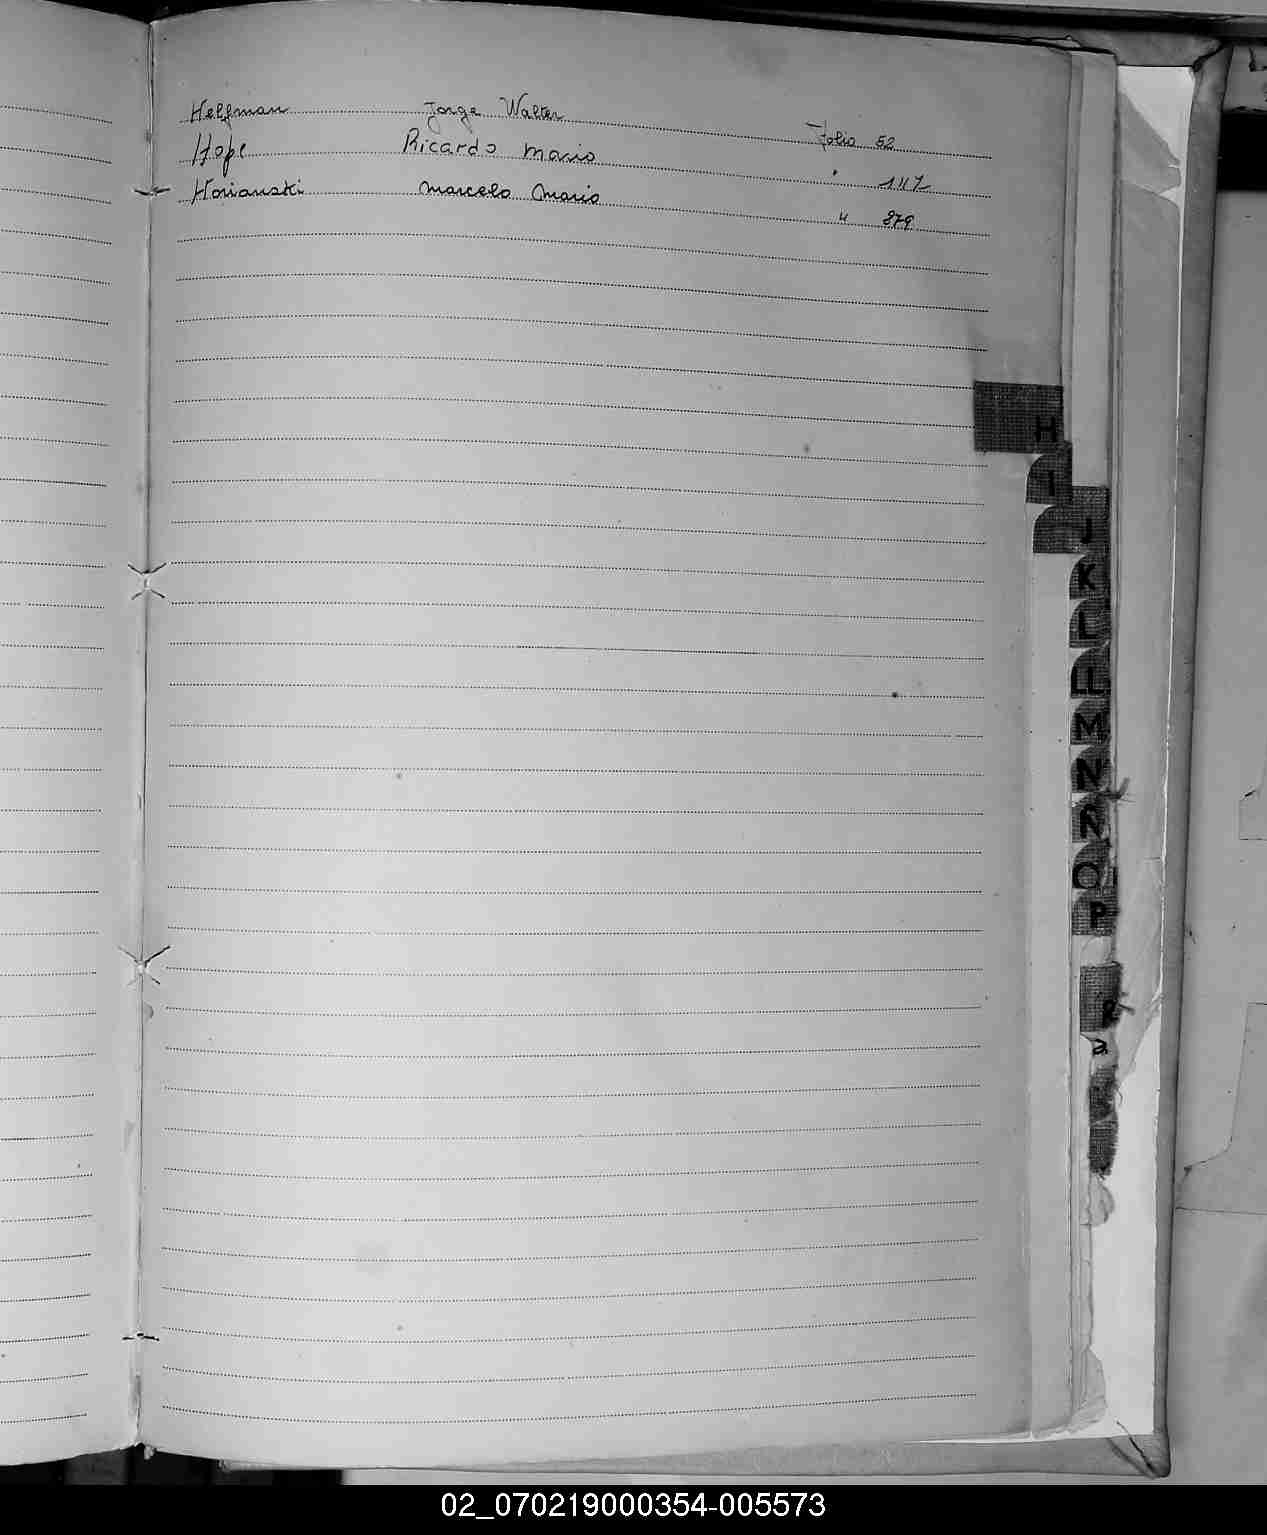 Helfman Jorge Walter Folio 52
Hope Ricardo Mario " 117
Horianski Marcelo Mario " 279
H
I
J
K
L
LL
M
N
Ñ
O
P
R
02_070219000354-005573